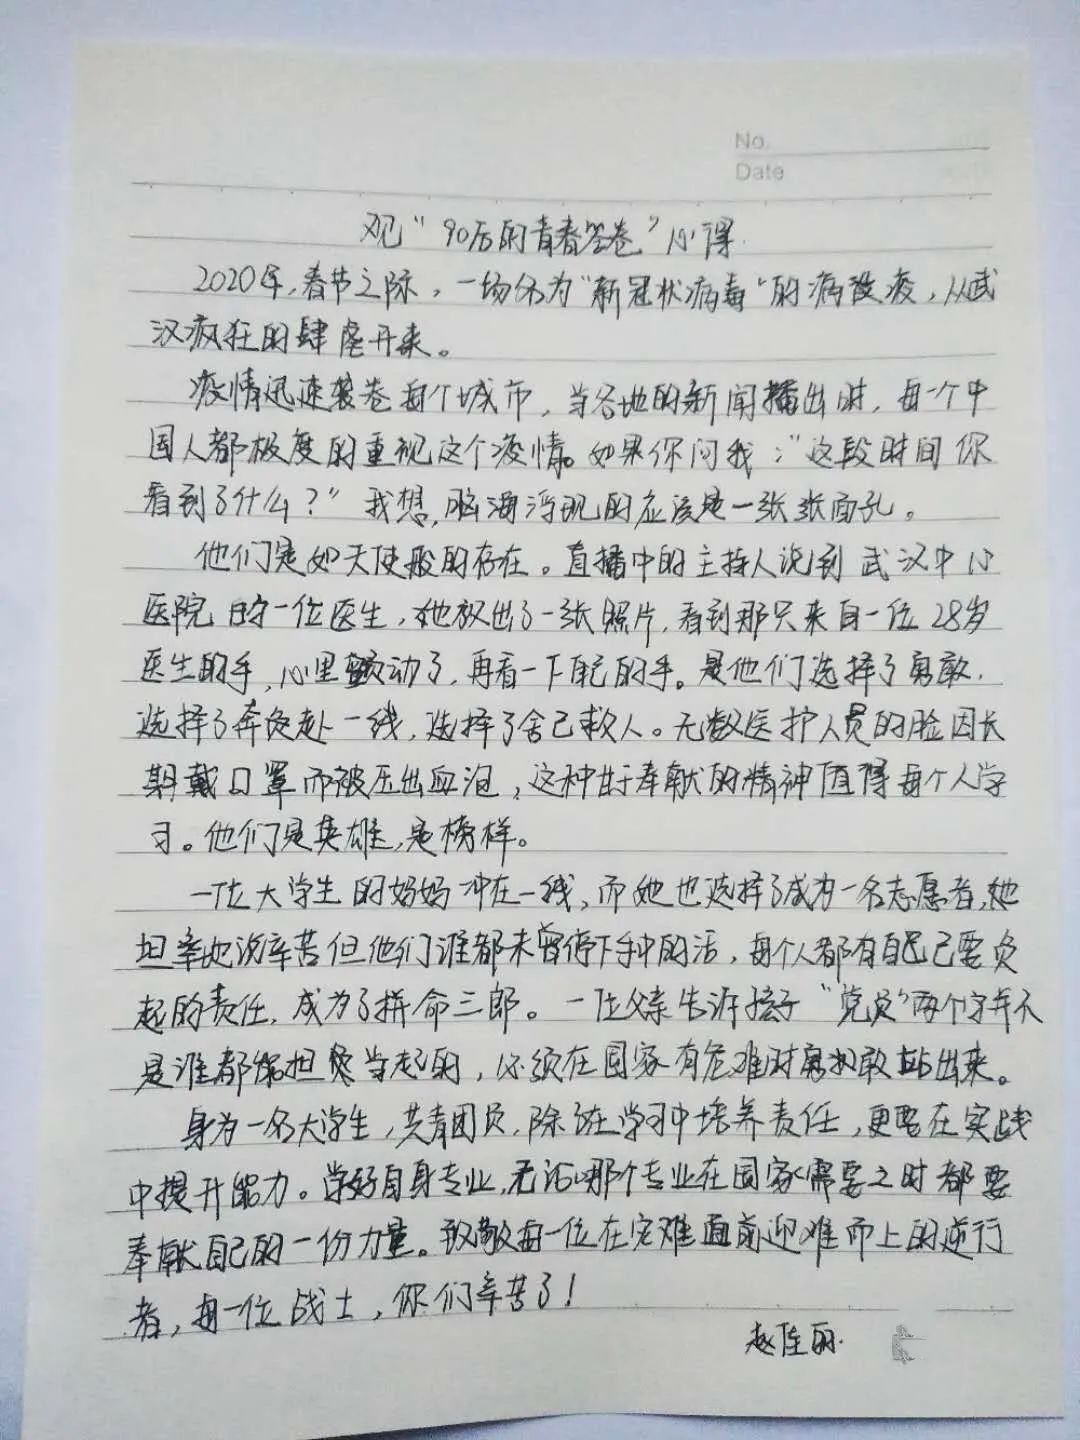 No.
Date
观“90后的青春答卷”心得.
2020年,春节之际,一场名为“新冠状病毒”的病疫,从武
汉疯狂的肆虐开来。
疫情迅速袭卷每个城市,当各地的新闻播出时,每一个中
国人都极度的重视这个疫情。如果你问我:“这段时间你
看到了什么?”我想,脑海浮现的应该是一张张面孔。
他们是如天使般的存在。直播中的主持人说到武汉中心
医院的一位医生,她放出了一张照片,看到那只来自一位28岁
医生的手,心里颤动了,再看一下自己的手。是他们选择了勇敢,
选择了奔赴一线,选择了舍己救人。无数医护人员的脸因长
期戴口罩而被压出血泡,这种甘于奉献的精神值得每个人学
习。他们是英雄,是榜样。
一位大学生的妈妈冲在一线,而她也选择了成为一名志愿者,她
坦率地说辛苦但他们谁都未曾停下手中的活,每个人都有自己要负
起的责任,成为了拼命三郎。一位父亲告诉孩子“党员”两个字并不
是谁都能担当起的,必须在国家有危难时勇敢站出来。
身为一名大学生,共青团员,除了在学习中培养责任,更要在实践
中提升能力。学好自身专业,无论哪个专业在国家需要之时都要
奉献自己的一份力量。致敬每一位在灾难面前迎难而上的逆行
者,每一位战士,你们辛苦了!
赵佳丽.